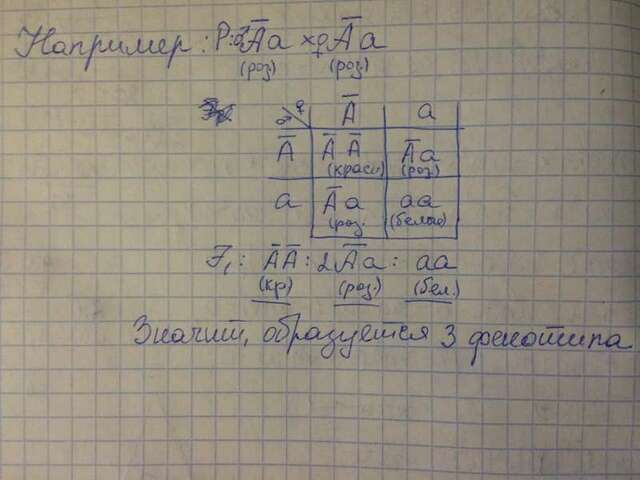 Например: P: ♂Āa × ♀Āa
(роз) (роз)
♂ ♀ Ā a
Ā ĀĀ Āa
(красн) (роз)
a Āa aa
(роз. (белые)
F₁: ĀĀ : 2Āa : aa
(кр) (роз.) (бел.)
Значит, образуется 3 фенотипа